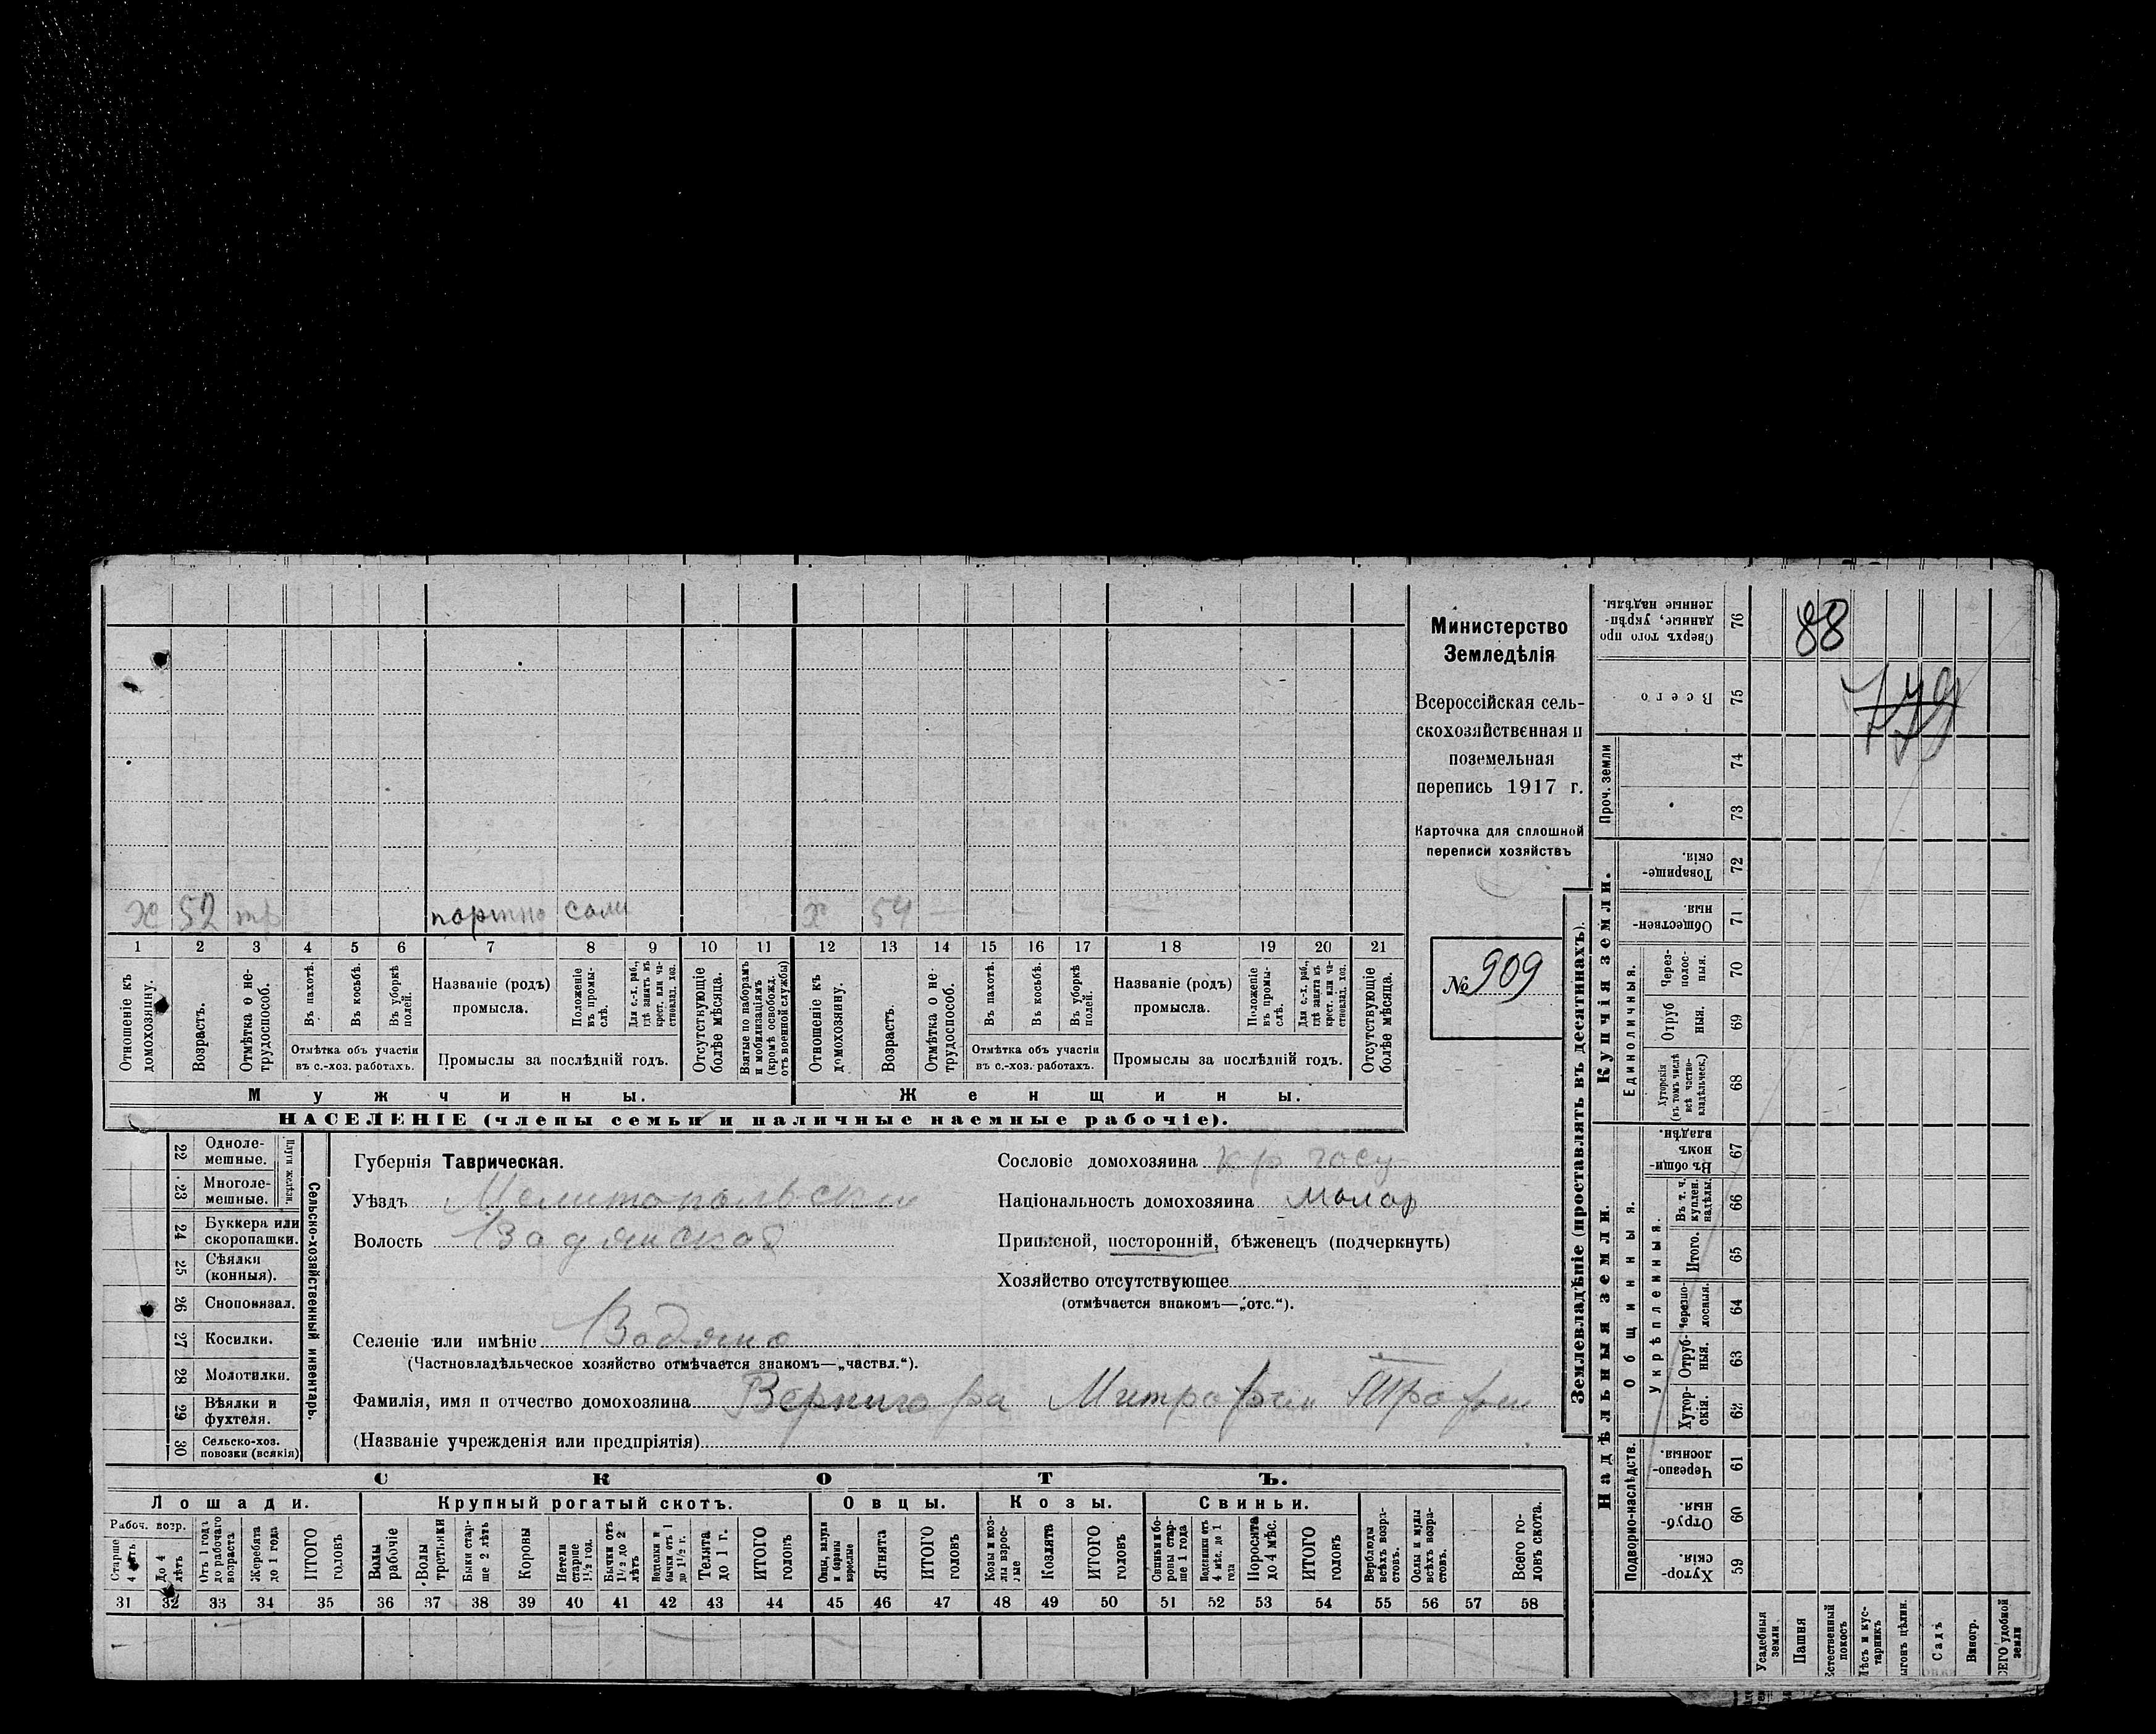 Министерство
Земледѣлія
Всероссійская сель-
скохозяйственная и
поземельная
перепись 1917 г.
Карточка для сплошной
переписи хозяйствъ
№ 909
88
779
х 52 тр портно сам х 54
1 2 3 4 5 6 7 8 9 10 11 12 13 14 15 16 17 18 19 20 21
Отношеніе къ домохозяину.
Возрастъ.
Отмѣтка о не-трудоспособ.
Въ пахотѣ.
Въ косьбѣ.
Въ уборкѣ полей.
Отмѣтка объ участіи
въ с.-хоз. работахъ.
Названіе (родъ)
промысла.
Положеніе въ промы-слѣ.
Для с.-х. раб., гдѣ занятъ въ крест. или ча-стновлад. хоз.
Промыслы за послѣдній годъ.
Отсутствующіе болѣе мѣсяца.
Взятые по наборамъ и мобилизаціямъ (кромѣ освобожд. отъ военной службы)
Отношеніе къ домохозяину.
Возрастъ.
Отмѣтка о не-трудоспособ.
Въ пахотѣ.
Въ косьбѣ.
Въ уборкѣ полей.
Отмѣтка объ участіи
въ с.-хоз. работахъ.
Названіе (родъ)
промысла.
Положеніе въ промы-слѣ.
Для с.-х. раб., гдѣ занята въ крест. или ча-стновлад. хоз.
Промыслы за послѣдній годъ.
Отсутствующіе болѣе мѣсяца.
Мужчины. Женщины.
НАСЕЛЕНІЕ (члены семьи и наличные наемные рабочіе).
Сельско-хозяйственный инвентарь.
Плуги желѣзн.
22 Однолемешные.
23 Многолемешные.
24 Буккера или скоропашки.
25 Сѣялки (конныя).
26 Сноповязал.
27 Косилки.
28 Молотилки.
29 Вѣялки и фухтеля.
30 Сельско-хоз. повозки (всякія)
Губернія Таврическая.
Уѣздъ Мелитопольски
Волость Водянская
Селеніе или имѣніе Водяно
(Частновладѣльческое хозяйство отмѣчается знакомъ—„частвл.“).
Фамилія, имя и отчество домохозяина Вернигора Митрофан Трофим
(Названіе учрежденія или предпріятія)
Сословіе домохозяина кр госу
Національность домохозяина малор
Приписной, посторонній, бѣженецъ (подчеркнуть)
Хозяйство отсутствующее
(отмѣчается знакомъ—„отс.“).
СКОТЪ.
Лошади. Крупный рогатый скотъ. Овцы. Козы. Свиньи.
Рабоч. возр.
Старше 4 лѣтъ
До 4 лѣтъ
Отъ 1 года до рабочаго возраста
Жеребята до 1 года
ИТОГО головъ
Волы рабочіе
Волы третьяки
Быки стар-ше 2 лѣтъ
Коровы
Нетели старше 1½ год.
Бычки отъ 1½ до 2 лѣтъ
Телки и бычки отъ 1 до 1½ г.
Телята до 1 г.
ИТОГО головъ
Овцы, валухи и бараны взрослые
Ягнята
ИТОГО головъ
Козы и коз-лы взрос-лые
Козлята
ИТОГО головъ
Свиньи и бо-ровы стар-ше 1 года
Подсвинки отъ 4 мѣс. до 1 года
Поросята до 4 мѣс.
ИТОГО головъ
Верблюды всѣхъ возра-стовъ.
Ослы и мулы всѣхъ возра-стовъ.
Всего го-ловъ скота.
31 32 33 34 35 36 37 38 39 40 41 42 43 44 45 46 47 48 49 50 51 52 53 54 55 56 57 58
Землевладѣніе (проставлять въ десятинахъ).
Надѣльныя земли.
Купчія земли.
Проч. земли
Подворно-наслѣдств.
Общинныя.
Укрѣпленныя.
Единоличныя.
Сверхъ того про данные, укрѣп-ленные надѣлы. 76
Всего 75
74
73
Товарище-скія. 72
Обществен-ныя. 71
Через-полос-ныя. 70
Отруб ныя. 69
Хуторскія (въ томъ числѣ всѣ частно-владѣльческ.) 68
Въ общин-номъ владѣн. 67
Въ т. ч. куплен. надѣлы. 66
Итого. 65
Черезпо-лосныя. 64
Отруб-ныя. 63
Хутор-скія. 62
Черезпо-лосныя. 61
Отруб-ныя. 60
Хутор-скія. 59
Усадебныя земли
Пашня
Естественный покосъ
Лѣсъ и кус-тарникъ
Выгонъ цѣлин.
Садъ
Виногр.
ВСЕГО удобной земли